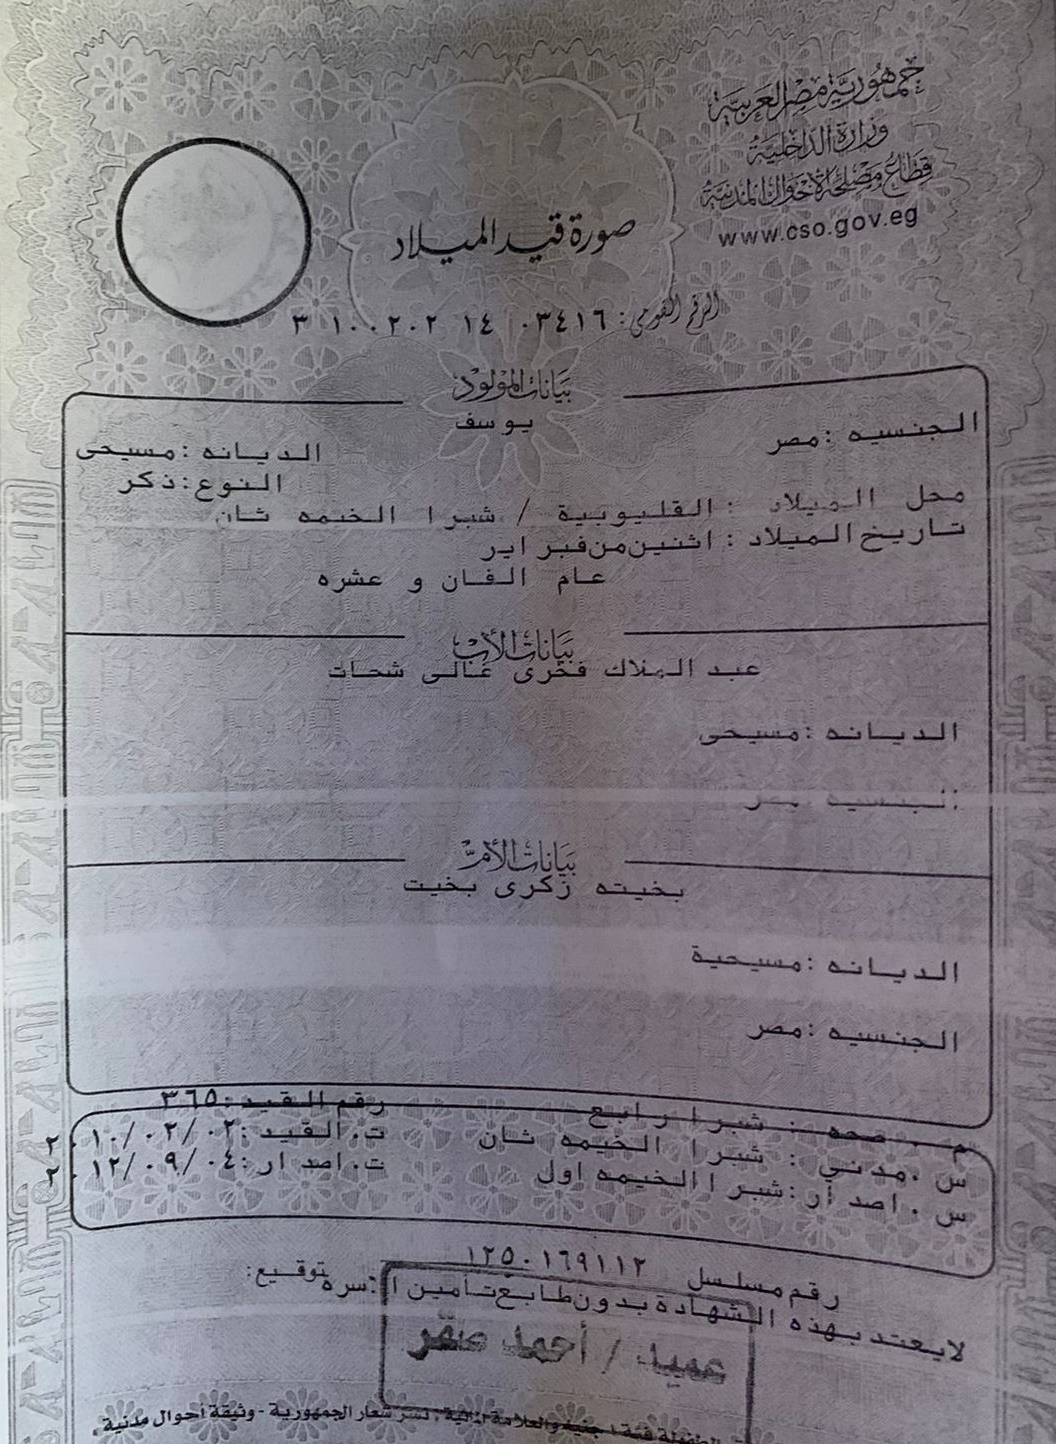 جمهورية مصر العربية
وزارة الداخلية
قطاع مصلحة الأحوال المدنية
www.cso.gov.eg
صورة قيد الميلاد
الرقم القومي: ٣ ١٠٠٢٠٢ ١٤ ٠٣٤١٦
بيانات المولود
يوسف
الجنسيه : مصر
الديانه : مسيحى
النوع : ذكر
محل الميلاد : القليوبية / شبرا الخيمه ثان
تاريخ الميلاد : اثنين من فبراير
عام الفان و عشره
بيانات الأب
عبد الملاك فخرى غالى شحات
الديانه : مسيحى
الجنسيه : مصر
بيانات الأم
بخيته زكرى بخيت
الديانه : مسيحية
الجنسيه : مصر
م . صحه : شبرا رابع رقم القيد : ٣٦٥
س . مدني : شبرا الخيمه ثان ت. القيد : ٢٠١٠/٠٢/٠٢
س . اصدار : شبرا الخيمه اول ت. اصدار : ٢٠١٢/٠٩/٠٤
رقم مسلسل ١٢٥٠١٦٩١١٢
توقيع :
لايعتد بهذه الشهادة بدون طابع تأمين الاسرة
عميد / أحمد صقر
الطفولة فئة ١ جنيه والعلامة المائية ، نسر شعار الجمهورية - وثيقة أحوال مدنية .